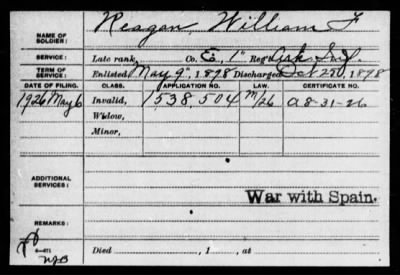 Reagan, William F
NAME OF SOLDIER:
SERVICE: Late rank, Co. E, 1" Reg't Ark. Inf.
TERM OF SERVICE: Enlisted May 9", 1898 Discharged Oct 25, 1898
DATE OF FILING. CLASS. APPLICATION NO. LAW. CERTIFICATE NO.
1926 May 6 Invalid, 1538,504 M/26 A 8-31-26
Widow,
Minor,
ADDITIONAL SERVICES:
War with Spain.
REMARKS:
Died , 1 , at